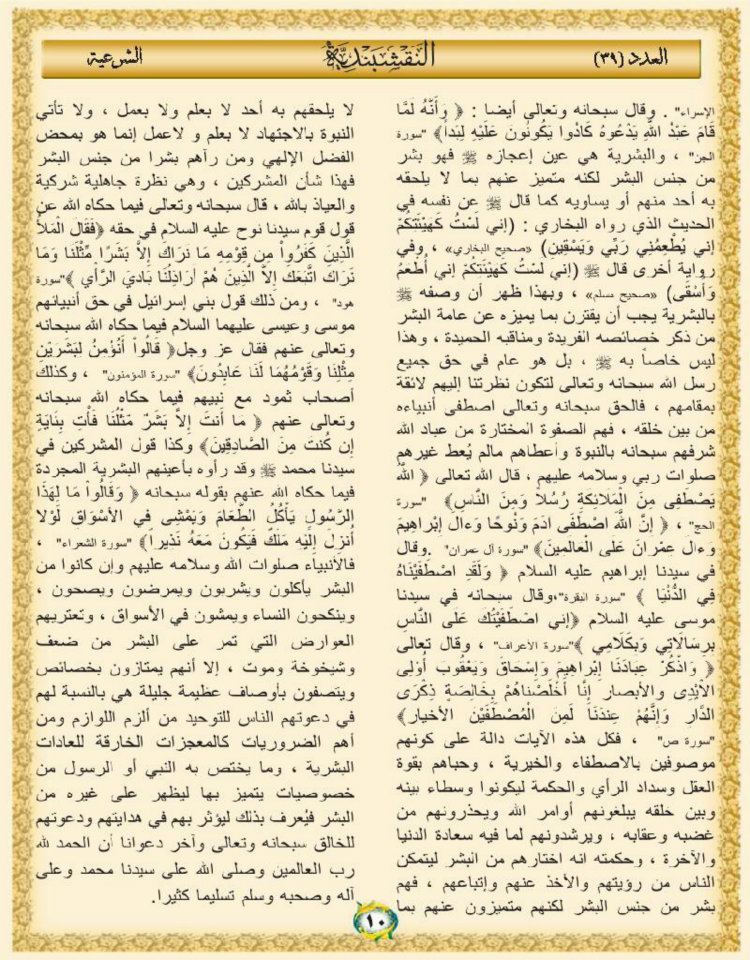 العدد (٣٩)
النقشبندية
الشرعية
الإسراء" . وقال سبحانه وتعالى أيضا : ﴿ وَأَنَّهُ لَمَّا
قَامَ عَبْدُ اللَّهِ يَدْعُوهُ كَادُوا يَكُونُونَ عَلَيْهِ لِبَداً﴾ "سورة
الجن" ، والبشرية هي عين إعجازه ﷺ فهو بشر
من جنس البشر لكنه متميز عنهم بما لا يلحقه
به أحد منهم أو يساويه كما قال ﷺ عن نفسه في
الحديث الذي رواه البخاري : (إني لَسْتُ كَهَيْئَتِكُمْ
إني يُطْعِمُنِي رَبِّي وَيَسْقِينِ) «صحيح البخاري» ، وفي
رواية أخرى قال ﷺ (إني لَسْتُ كَهَيْئَتِكُمْ إني أُطْعَمُ
وَأُسْقَى) «صحيح مسلم» ، وبهذا ظهر أن وصفه ﷺ
بالبشرية يجب أن يقترن بما يميزه عن عامة البشر
من ذكر خصائصه الفريدة ومناقبه الحميدة ، وهذا
ليس خاصاً به ﷺ ، بل هو عام في حق جميع
رسل الله سبحانه وتعالى لتكون نظرتنا إليهم لائقة
بمقامهم ، فالحق سبحانه وتعالى اصطفى أنبياءه
من بين خلقه ، فهم الصفوة المختارة من عباد الله
شرفهم سبحانه بالنبوة وأعطاهم مالم يُعط غيرهم
صلوات ربي وسلامه عليهم ، قال الله تعالى ﴿ اللَّهُ
يَصْطَفِي مِنَ الْمَلَائِكَةِ رُسُلًا وَمِنَ النَّاسِ﴾ "سورة
الحج" ، ﴿ إِنَّ اللَّهَ اصْطَفَى ادَمَ وَنُوحًا وَءالَ إِبْرَاهِيمَ
وءالَ عِمْرَانَ عَلَى الْعَالَمِينَ﴾ "سورة آل عمران" .وقال
في سيدنا إبراهيم عليه السلام ﴿ وَلَقَدِ اصْطَفَيْنَاهُ
فِي الدُّنْيَا ﴾ "سورة البقرة"،وقال سبحانه في سيدنا
موسى عليه السلام ﴿إني اصْطَفَيْتُكَ عَلَى النَّاسِ
بِرِسَالَاتِي وَبِكَلَامِي ﴾"سورة الأعراف" ، وقال تعالى
﴿ وَاذْكُرْ عِبَادَنَا إِبْرَاهِيمَ وَإِسْحَاقَ وَيَعْقُوبَ أُولِي
الْأَيْدِي وَالْأَبْصَارِ إِنَّا أَخْلَصْنَاهُمْ بِخَالِصَةٍ ذِكْرَى
الدَّارِ وَإِنَّهُمْ عِنْدَنَا لَمِنَ الْمُصْطَفَيْنَ الأخيار﴾
"سورة ص" ، فكل هذه الآيات دالة على كونهم
موصوفين بالاصطفاء والخيرية ، وحباهم بقوة
العقل وسداد الرأي والحكمة ليكونوا وسطاء بينه
وبين خلقه يبلغونهم أوامر الله ويحذرونهم من
غضبه وعقابه ، ويرشدونهم لما فيه سعادة الدنيا
والآخرة ، وحكمته انه اختارهم من البشر ليتمكن
الناس من رؤيتهم والأخذ عنهم وإتباعهم ، فهم
بشر من جنس البشر لكنهم متميزون عنهم بما
لا يلحقهم به أحد لا بعلم ولا بعمل ، ولا تأتي
النبوة بالاجتهاد لا بعلم و لاعمل إنما هو بمحض
الفضل الإلهي ومن رآهم بشرا من جنس البشر
فهذا شأن المشركين ، وهي نظرة جاهلية شركية
والعياذ بالله ، قال سبحانه وتعالى فيما حكاه الله عن
قول قوم سيدنا نوح عليه السلام في حقه ﴿فَقَالَ الْمَلَأُ
الَّذِينَ كَفَرُواْ مِن قِوْمِهِ مَا نَرَاكَ إِلاَّ بَشَرًا مِّثْلَنَا وَمَا
نَرَاكَ اتَّبَعَكَ إِلاَّ الَّذِينَ هُمْ أَرَاذِلُنَا بَادِيَ الرَّأْيِ ﴾"سورة
هود" ، ومن ذلك قول بني إسرائيل في حق أنبيائهم
موسى وعيسى عليهما السلام فيما حكاه الله سبحانه
وتعالى عنهم فقال عز وجل﴿ قَالُواْ أَنُؤْمِنُ لِبَشَرَيْنِ
مِثْلِنَا وَقَوْمُهُمَا لَنَا عَابِدُونَ﴾ "سورة المؤمنون" ، وكذلك
أصحاب ثمود مع نبيهم فيما حكاه الله سبحانه
وتعالى عنهم ﴿ مَا أَنتَ إِلاَّ بَشَرٌ مِّثْلُنَا فَأْتِ بِئَايَةٍ
إِن كُنتَ مِنَ الصَّادِقِينَ﴾ وكذا قول المشركين في
سيدنا محمد ﷺ وقد رأوه بأعينهم البشرية المجردة
فيما حكاه الله عنهم بقوله سبحانه ﴿ وَقَالُواْ مَا لِهَذَا
الرَّسُولِ يَأْكُلُ الطَّعَامَ وَيَمْشِي فِي الأَسْوَاقِ لَوْلَا
أُنزِلَ إِلَيْهِ مَلَكٌ فَيَكُونَ مَعَهُ نَذِيراً﴾ "سورة الشعراء" ،
فالأنبياء صلوات الله وسلامه عليهم وإن كانوا من
البشر يأكلون ويشربون ويمرضون ويصحون ،
وينكحون النساء ويمشون في الأسواق ، وتعتريهم
العوارض التي تمر على البشر من ضعف
وشيخوخة وموت ، إلا أنهم يمتازون بخصائص
ويتصفون بأوصاف عظيمة جليلة هي بالنسبة لهم
في دعوتهم الناس للتوحيد من ألزم اللوازم ومن
أهم الضروريات كالمعجزات الخارقة للعادات
البشرية ، وما يختص به النبي أو الرسول من
خصوصيات يتميز بها ليظهر على غيره من
البشر فيُعرف بذلك ليؤثر بهم في هدايتهم ودعوتهم
للخالق سبحانه وتعالى وآخر دعوانا أن الحمد لله
رب العالمين وصلى الله على سيدنا محمد وعلى
آله وصحبه وسلم تسليما كثيرا.
١٠